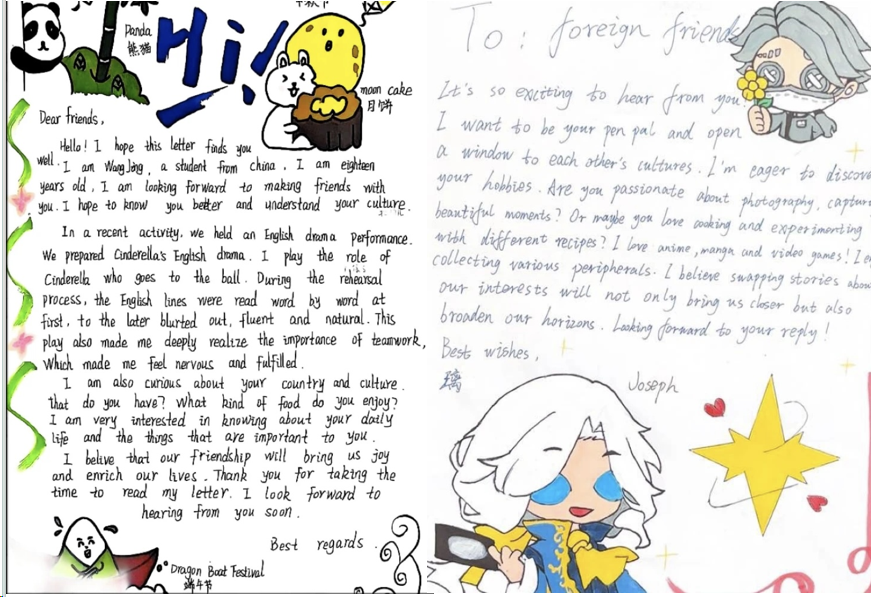 Panda
熊猫
Hi!
中秋节
moon cake
月饼
Dear friends,
Hello! I hope this letter finds you
well. I am Wang Jing, a student from china. I am eighteen
years old. I am looking forward to making friends with
you. I hope to know you better and understand your culture.
In a recent activity, we held an English drama performance.
We prepared Cinderella's English drama. I play the role of
Cinderella who goes to the ball. During the rehearsal
process, the English lines were read word by word at
first, to the later blurted out, fluent and natural. This
play also made me deeply realize the importance of teamwork,
which made me feel nervous and fulfilled.
I am also curious about your country and culture.
that do you have? What kind of food do you enjoy?
I am very interested in knowing about your daily
life and the things that are important to you.
I belive that our friendship will bring us joy
and enrich our lives. Thank you for taking the
time to read my letter. I look forward to
hearing from you soon.
Best regards.
Dragon Boat Festival
端午节
To: foreign friends
It's so exciting to hear from you!
I want to be your pen pal and open
a window to each other's cultures. I'm eager to discove
your hobbies. Are you passionate about photography, captur
beautiful moments? Or maybe you love cooking and experimenting
with different recipes? I love anime, manga and video games! I e
collecting various peripherals. I believe swapping stories abou
our interests will not only bring us closer but also
broaden our horizons. Looking forward to your reply!
Best wishes,
璃
Joseph